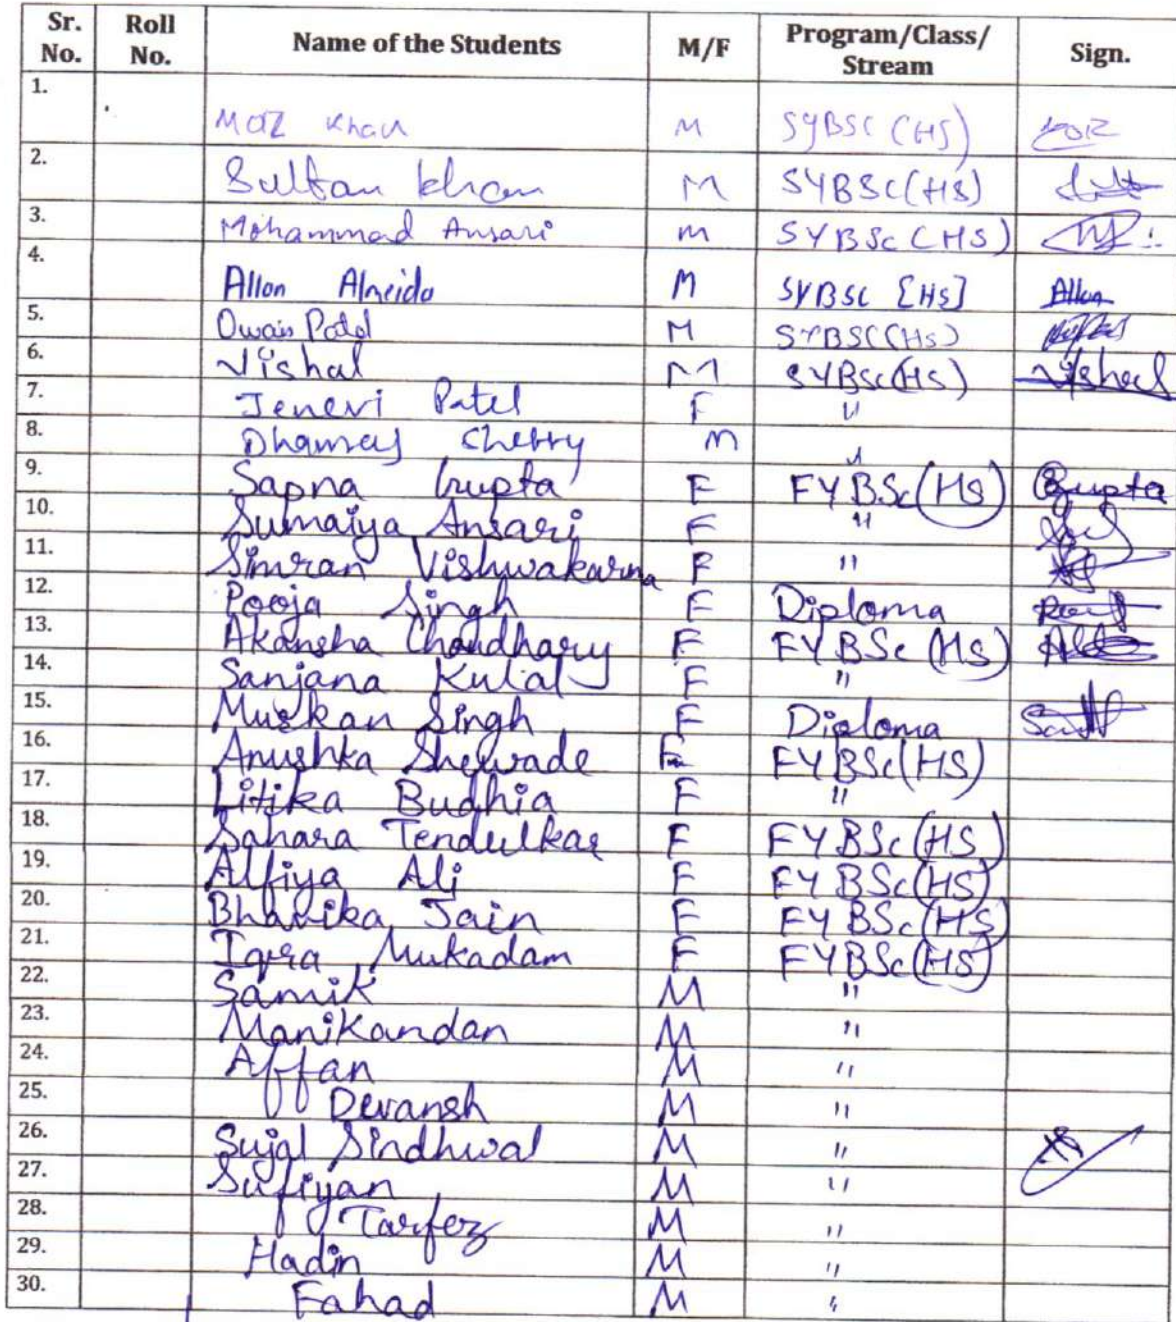 Sr. No. Roll No. Name of the Students M/F Program/Class/ Stream Sign.
1. Moiz Khan M SYBSC (HS)
2. Sultan khan M SYBSc (HS)
3. Mohammad Ansari m SYBSc (HS)
4. Allon Almeida M SYBSC [HS] Allon
5. Owais Patel M SYBSC (HS)
6. Vishal M SYBSc (HS) Vishal
7. Jenevi Patel F "
8. Dhamraj Chetty m "
9. Sapna Gupta F FYBSc (HS) Gupta
10. Sumaiya Ansari F "
11. Simran Vishwakarma F "
12. Pooja Singh F Diploma
13. Akansha Chaudhary F FYBSc (HS)
14. Sanjana Kulal F "
15. Muskan Singh F Diploma
16. Anushka Shewade F FYBSc (HS)
17. Litika Budhia F "
18. Sahara Tendulkar F FYBSc (HS)
19. Alfiya Ali F FYBSc (HS)
20. Bhavika Jain F FYBSc (HS)
21. Iqra Mukadam F FYBSc (HS)
22. Samik M "
23. Manikandan M "
24. Affan M "
25. Devansh M "
26. Sujal Sindhwal M "
27. Sufiyan M "
28. Tarfez M "
29. Hadin M "
30. Fahad M "